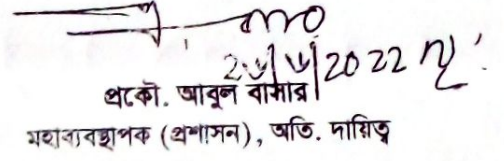 ২৬/৬/2022 ইং
প্রকৌ. আবুল বাসার
মহাব্যবস্থাপক (প্রশাসন), অতি. দায়িত্ব